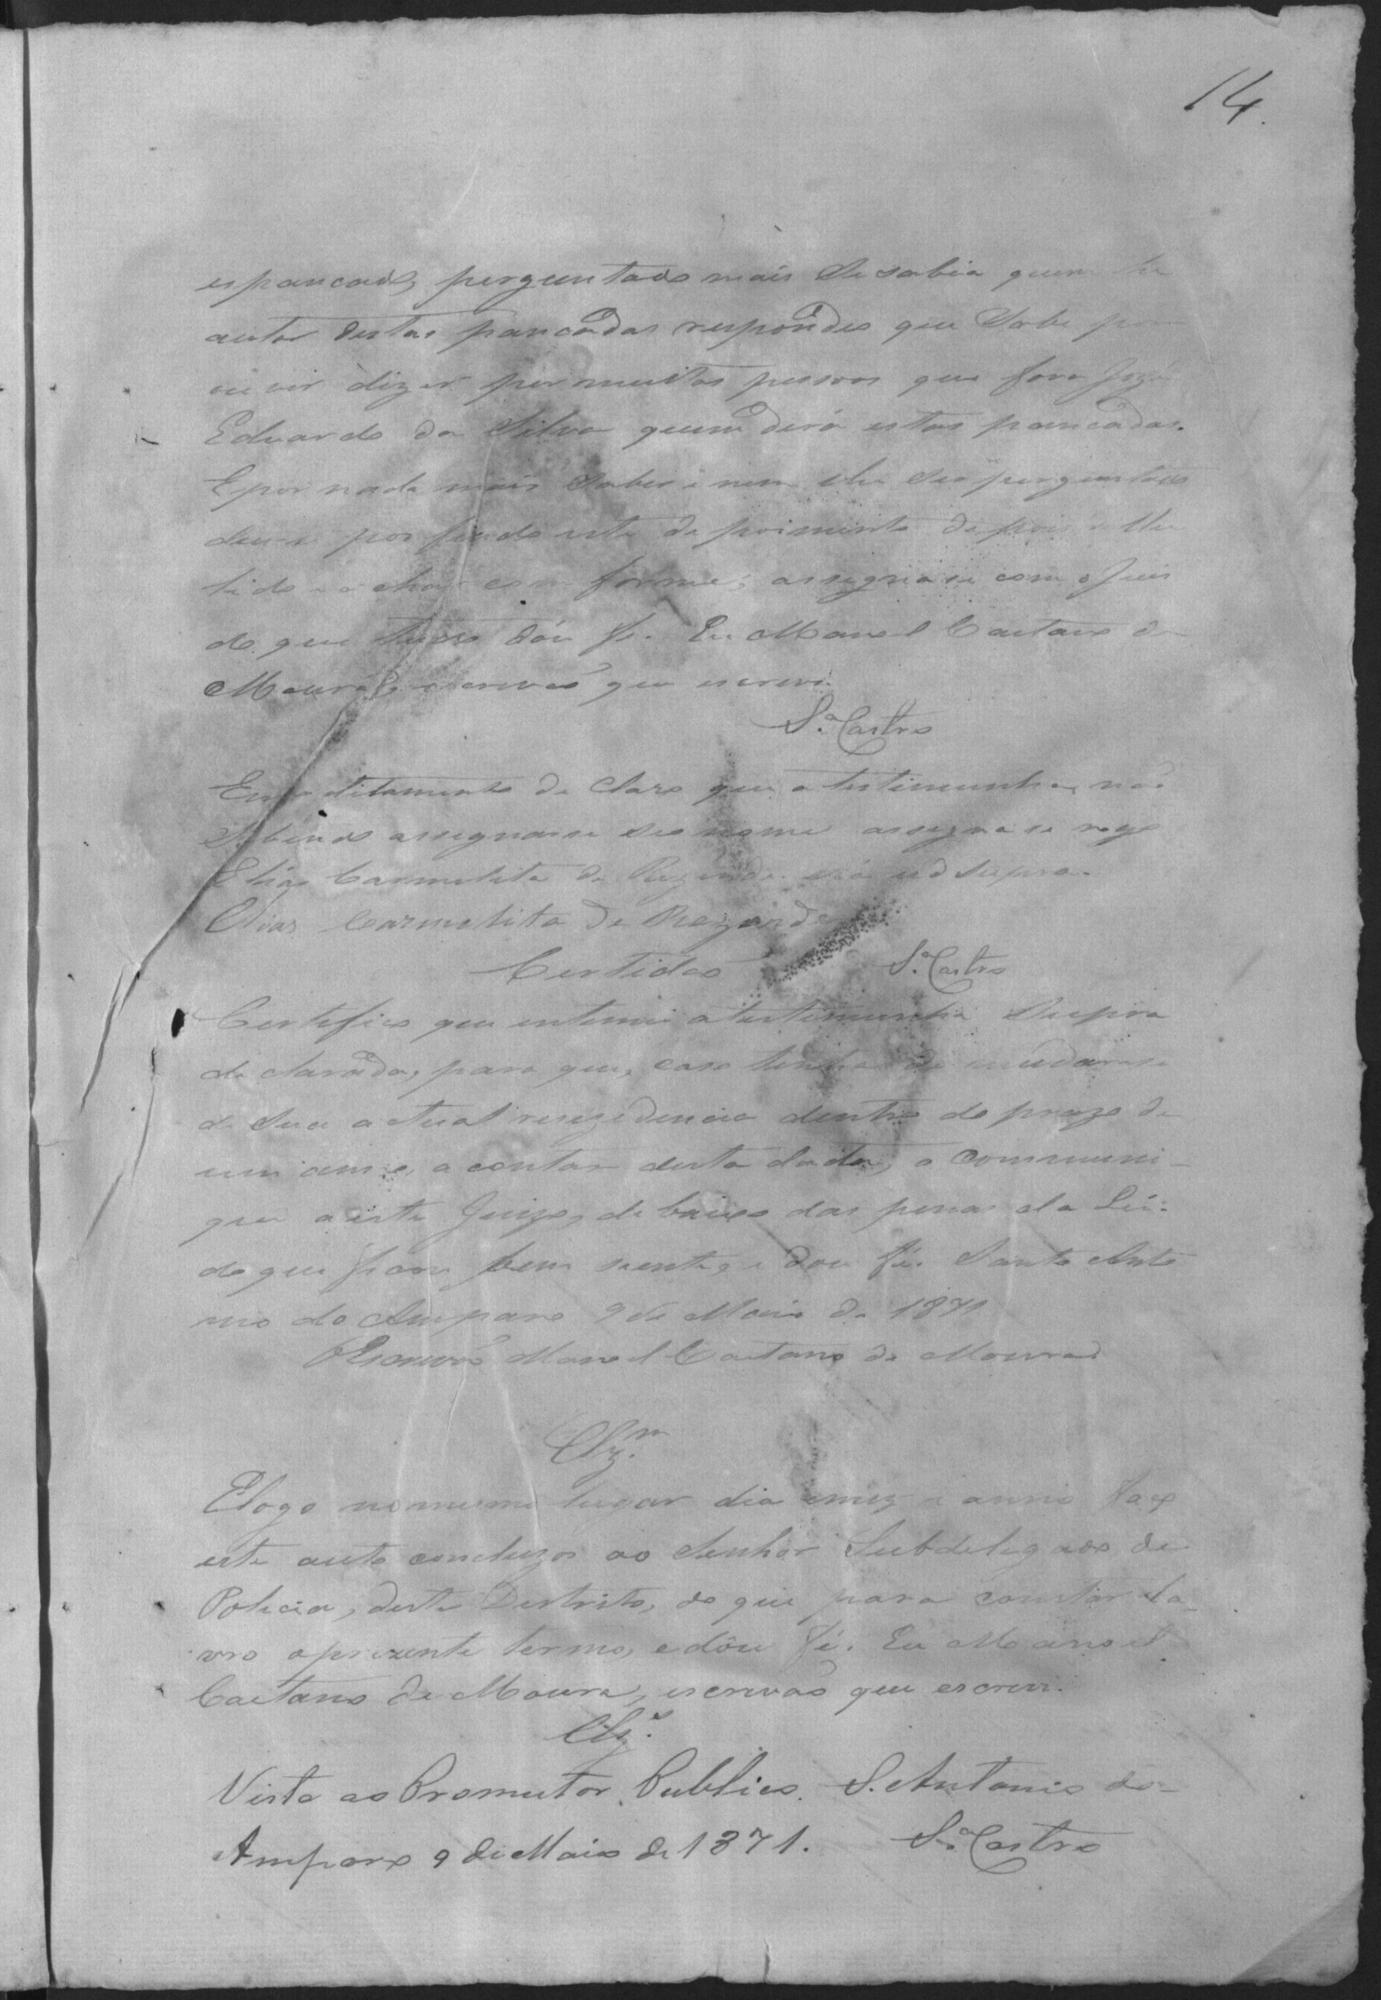 14.
espancado, perguntado mais se sabia quem
autor destas pancadas respondeo que Sabe por
ouvir dizer por muitas pessoas que fora José
Eduardo da Silva quem dera estas pancadas.
E por nada mais saber e nem lhe ser perguntado
deu se por findo este de poimento depois
lido e achar com forme, assigna se com o Juis
do que tudo dou fé. Eu Manoel Caetano de
Moura escrivão que escrevi.
Sª Castro
Em aditamento de claro que a testimunha não
Sabendo assignar se seo nome assigna se rogo
Elias Carmelita de Rezende era ud supra.
Elias Carmelita de Rezende
Certidão Sª Castro
Certifico que intimei a testimunha Supra
de clarada, para que, caso tenha de mudar se
de sua actual resezidencia dentro do prazo de
um anno, a contar desta data, o communi-
que a este Juizo, de baixo das penas da Lei.
do que ficou bem siente, e dou fé. Santo Anto
nio do Amparo 9 de Maio de 1871
O Escrivão Manoel Caetano de Moura
Clzm
E logo no mesmo lugar dia mez e anno faço
este auto concluzos ao Senhor Subdelegado de
Policia, deste Destrito, do que para constar la-
vro o prezente termo, e dôu fé. Eu Manoel
Caetano de Moura, escrivão que escrevi.
Clzs
Vista ao Promutor Publico. S. Antonio do
Amparo 9 de Maio de 1871. Sª Castro